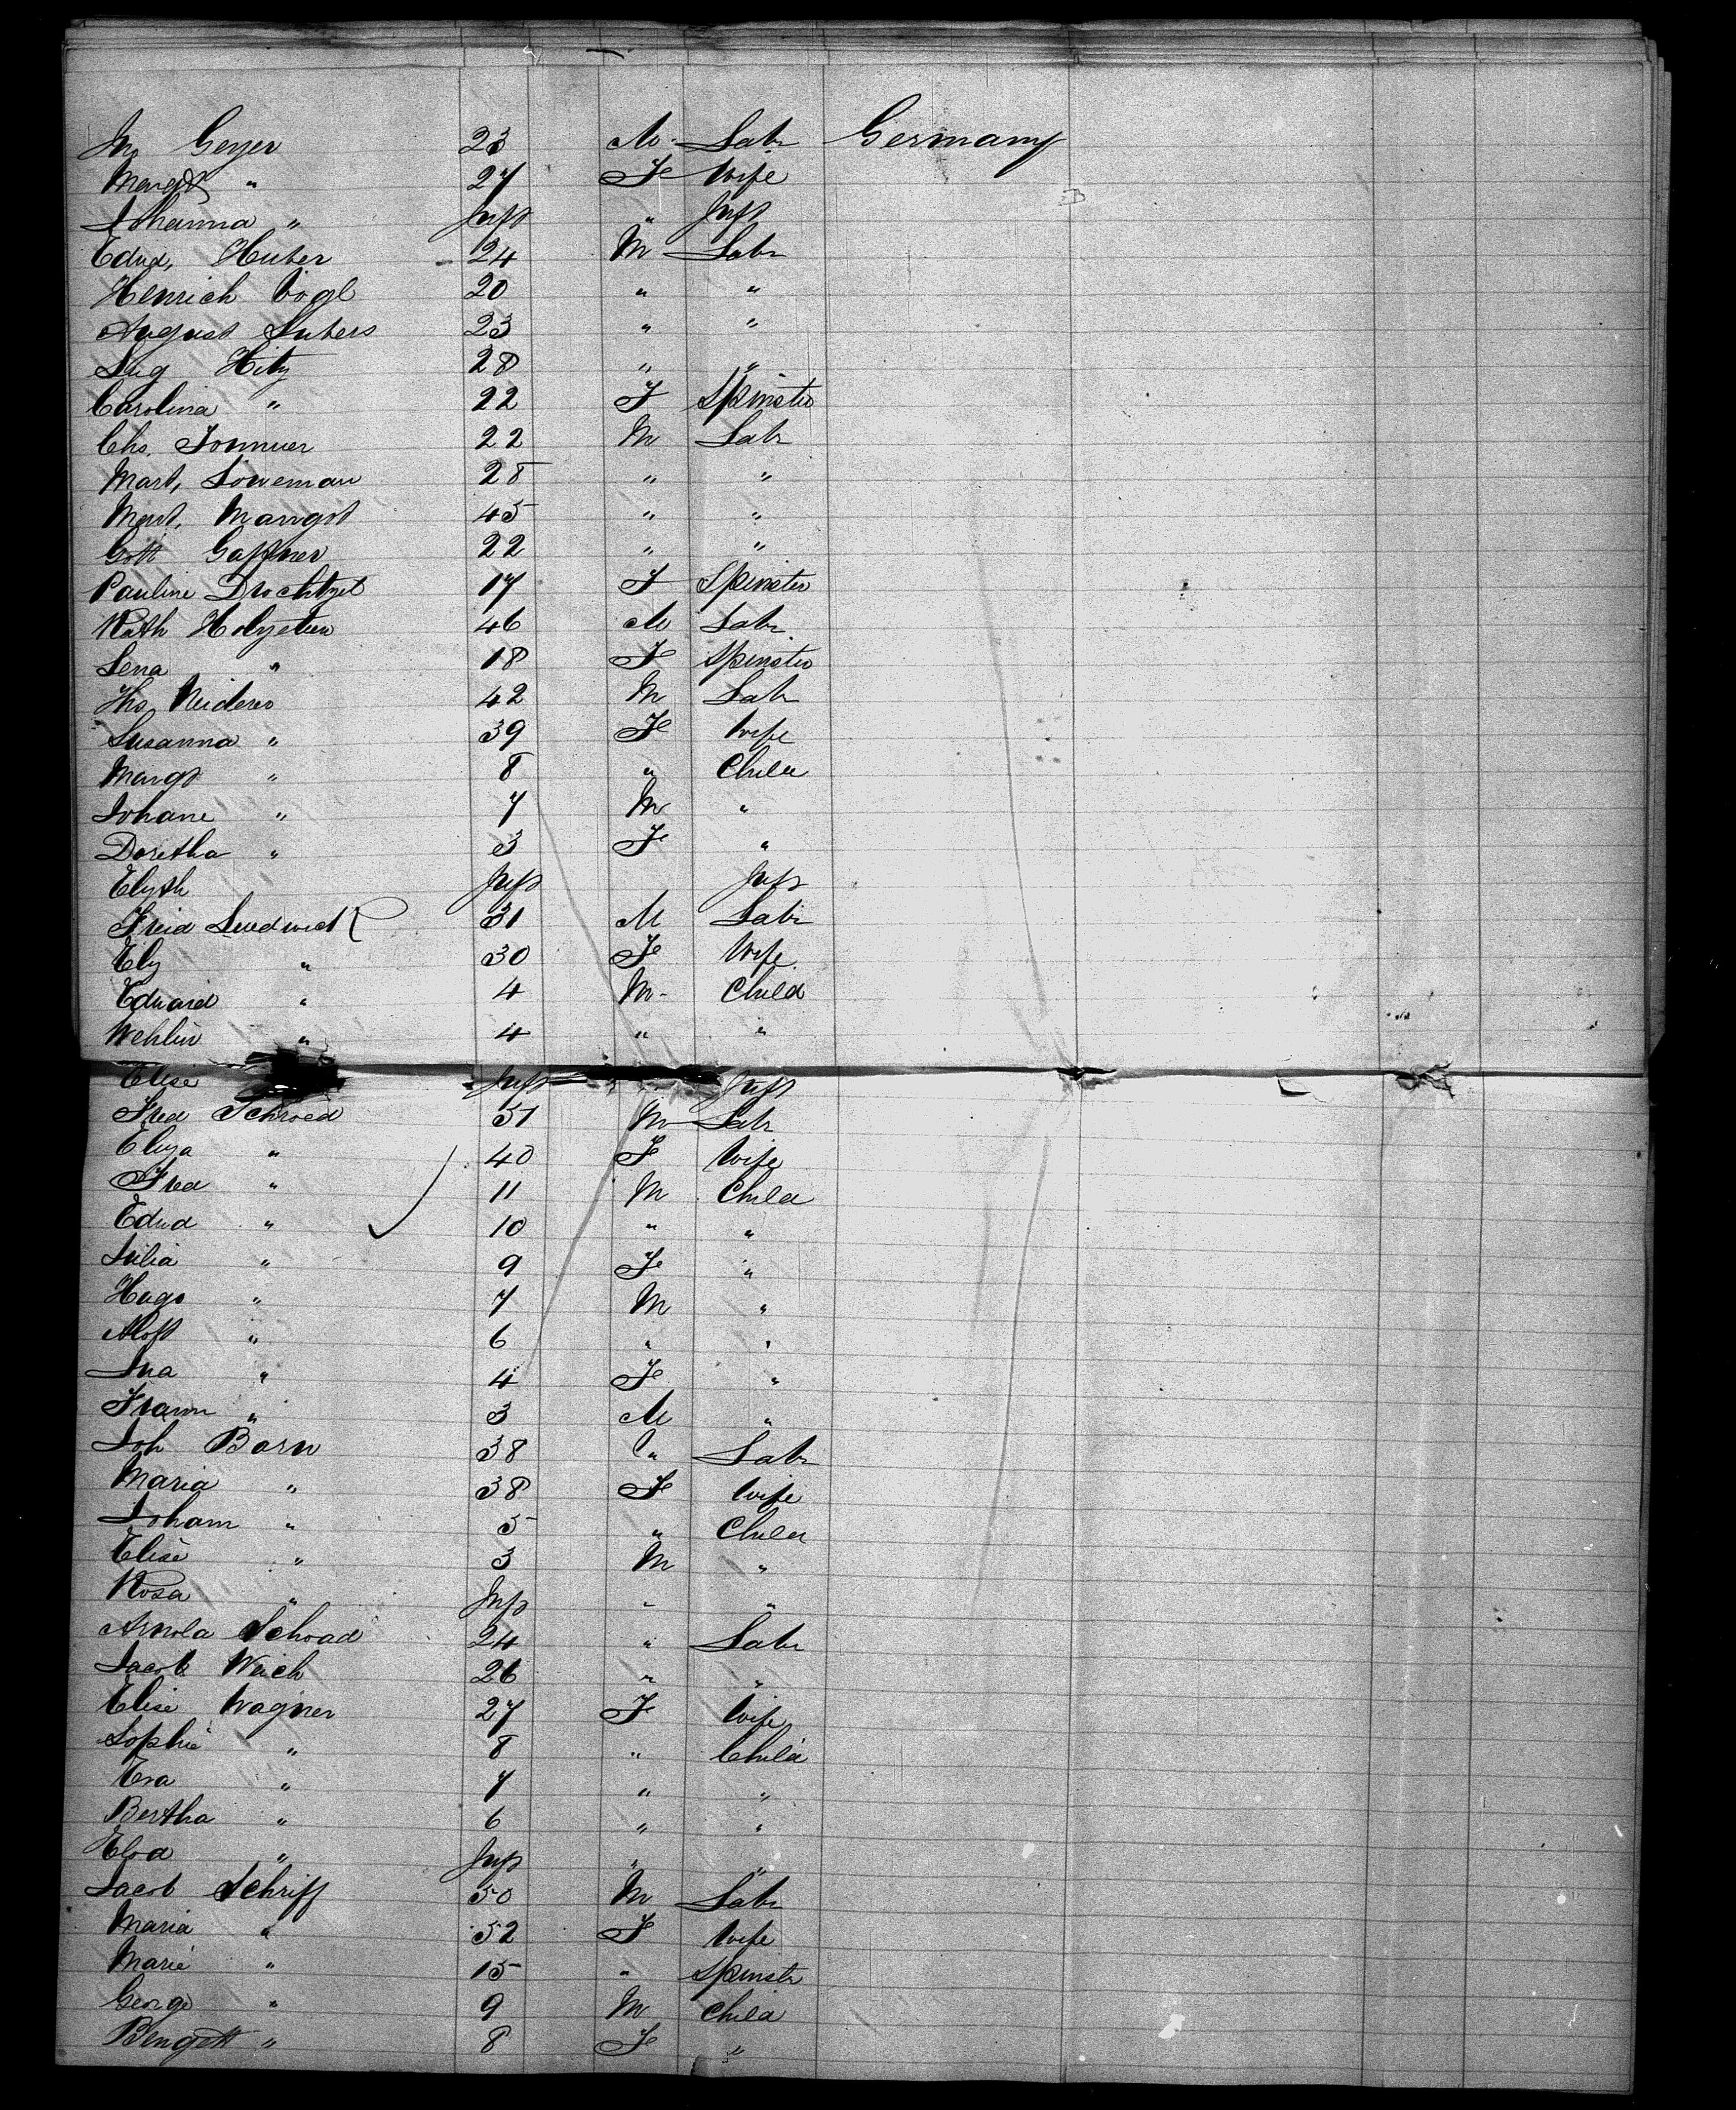 Jno Geyer 23 M. Labr Germany
Margt " 27 Fe Wife
Johanna " Inft " Inft
Edwd, Huber 24 M Labr
Henrich Vogl 20 " "
August Luters 23 " "
Aug Hitz 28 " "
Carolina " 22 F Spinster
Chs. 22 M Labr
Mart, Loweman 28 " "
Mart, Mangst 45 " "
Gott Gaffner 22 " "
Pauline 17 F Spinster
Kath 46 M Labr
Lena " 18 Fe Spinster
Ths Neiderer 42 M Labr
Susanna " 39 Fe Wife
Margt " 8 " Child
Johane " 7 M "
Doretha " 3 Fe "
Elizth Inft Inft
Fred Ludwick 31 M Labr
Elz " 30 Fe Wife
Edward " 4 M- Child
Wehlin " 4 " "
Elise Inft Inft
Fred Schroed 51 M Labr
Eliza " 40 Fe Wife
Fred " 11 M Child
Edwd " 10 " "
Julia " 9 Fe "
Hugo " 7 M "
" 6 " "
Ina " 4 Fe "
Frann " 3 M "
Joh Born 38 " Labr
Maria " 38 Fe Wife
Joham " 5 " Child
Elise " 3 M "
Rosa " Inft " "
Arnold Schoad 24 " Labr
Jacob Weich 26 " "
Elise Wagner 27 F Wife
Sophie " 8 " Child
Eva " 7 " "
Bertha " 6 " "
Elsa " Inft " "
Jacob Schriff 50 M Labr
Maria " 52 F Wife
Marie " 15 " Spinstr
George " 9 M Child
Bengett " 8 Fe "